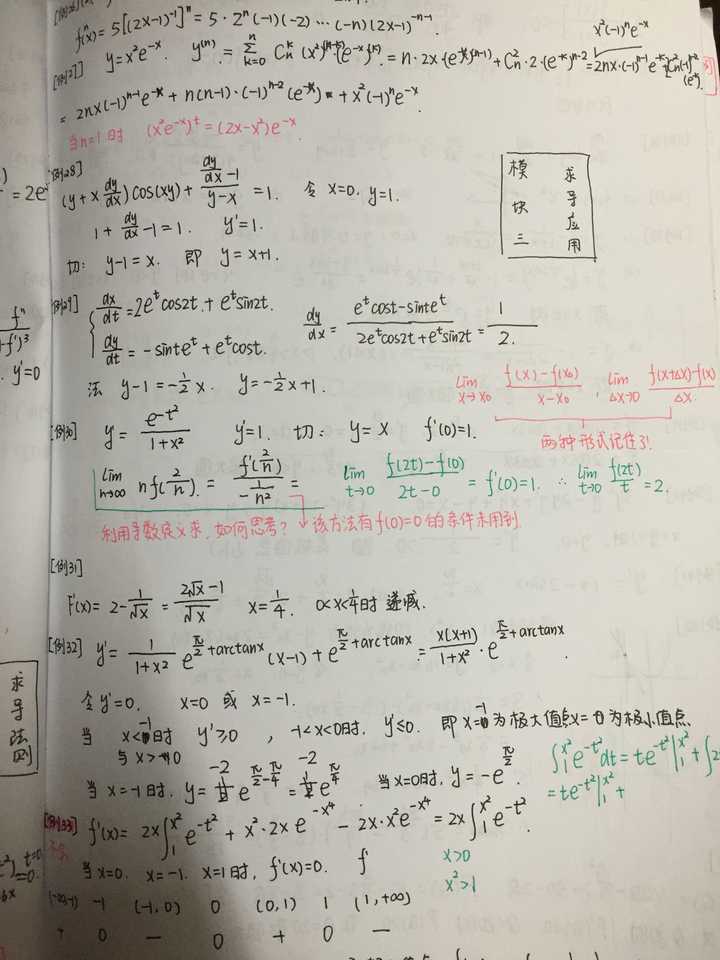 f^(n)(x) = 5[(2x-1)^-1]^n = 5·2^n(-1)(-2)…(-n)(2x-1)^-n-1
x²(-1)^n e^-x
y=x²e^-x. y^(n) = Σ k=0 n C_n^k (x²)^(n-k) (e^-x)^(k) = n·2x·(e^-x)^(n-1) + C_n^2·2·(e^-x)^n-2 = 2nx·(-1)^n-1 e^-x
= 2nx(-1)^n-1 e^-x + n(n-1)·(-1)^n-2 (e^-x) + x²(-1)^n e^-x.
当n=1时 (x²e^-x)' = (2x-x²)e^-x.
[例28]
(y + x dy/dx) cos(xy) + (dy/dx - 1)/(y-x) = 1. 令 x=0. y=1.
1 + dy/dx - 1 = 1. y'=1.
切: y-1=x. 即 y=x+1.
模块三 求导应用
= 2e^t
[例29] { dx/dt = 2e^t cos2t. + e^t sin2t.
dy/dt = -sinte^t + e^t cost.
dy/dx = (e^t cost - sinte^t)/(2e^t cos2t + e^t sin2t) = 1/2.
y'=0
法 y-1 = -½x. y = -½x+1.
lim x→x₀ (f(x)-f(x₀))/(x-x₀), lim Δx→0 (f(x+Δx)-f(x))/Δx.
两种形式记住了!
[例30] y' = e^-t²/(1+x²) y'=1. 切: y=x f'(0)=1.
lim n→∞ n f(2/n). = f'(2/n)/(-1/n²) = lim t→0 (f(2t)-f(0))/(2t-0) = f'(0)=1. ∴ lim t→0 f(2t)/t = 2.
利用导数定义求, 如何思考? 该方法有f(0)=0的条件未用到.
[例31]
F'(x) = 2 - 1/√x = (2√x-1)/√x x=¼. 0<x<¼时 递减.
[例32] y' = 1/(1+x²) e^(π/2+arctanx) (x-1) + e^(π/2+arctanx) = x(x+1)/(1+x²) · e^(π/2+arctanx).
求导法则
令y'=0. x=0 或 x=-1.
当 x<-1时 y'≥0, -1<x<0时. y'≤0. 即 x=-1为极大值点x=0为极小值点.
与 x>0
当 x=-1时, y = -2 e^(π/2-π/4) = -2 e^(π/4). 当x=0时, y=-e^(π/2).
∫₁^x² e^-t² dt = te^-t² |₁^x² + ∫2
= te^-t² |₁^x² +
[例33] f'(x) = 2x∫₁^x² e^-t² + x²·2x e^-x⁴ - 2x·x²e^-x⁴ = 2x∫₁^x² e^-t².
当 x=0. x=-1. x=1时, f'(x)=0. f
x>0
x²>1
(-∞,-1) -1 (-1,0) 0 (0,1) 1 (1,+∞)
+ 0 - 0 + 0 -